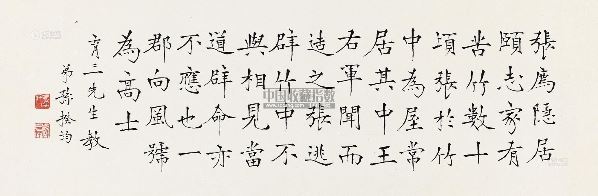 張廌隱居
頤志家有
苦竹數十
頃張於竹
中為屋常
居其中王
右軍聞而
造之張逃
辟竹中不
與相見當
道辟命亦
不應也一
郡向風號
為高士
育三先生教
弟孫揆均